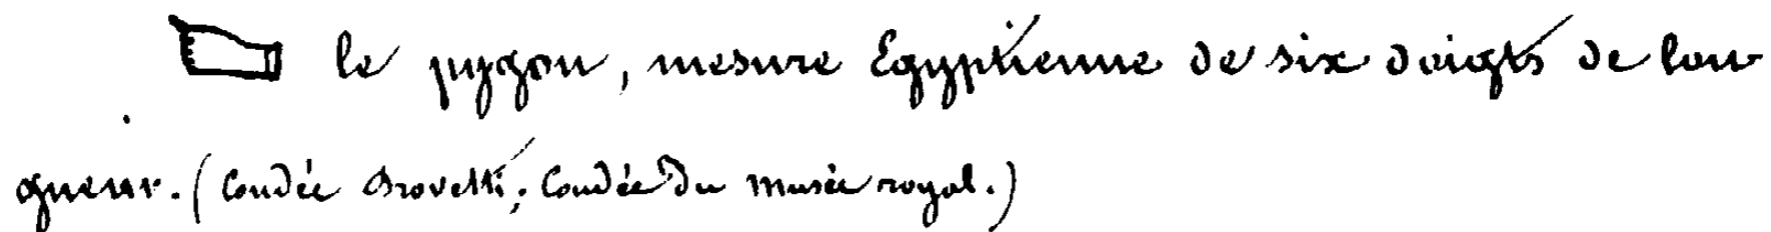 le pygon, mesure Egyptienne de six doigts de lon-
gueur. (Coudée Drovetti; Coudée du Musée royal.)